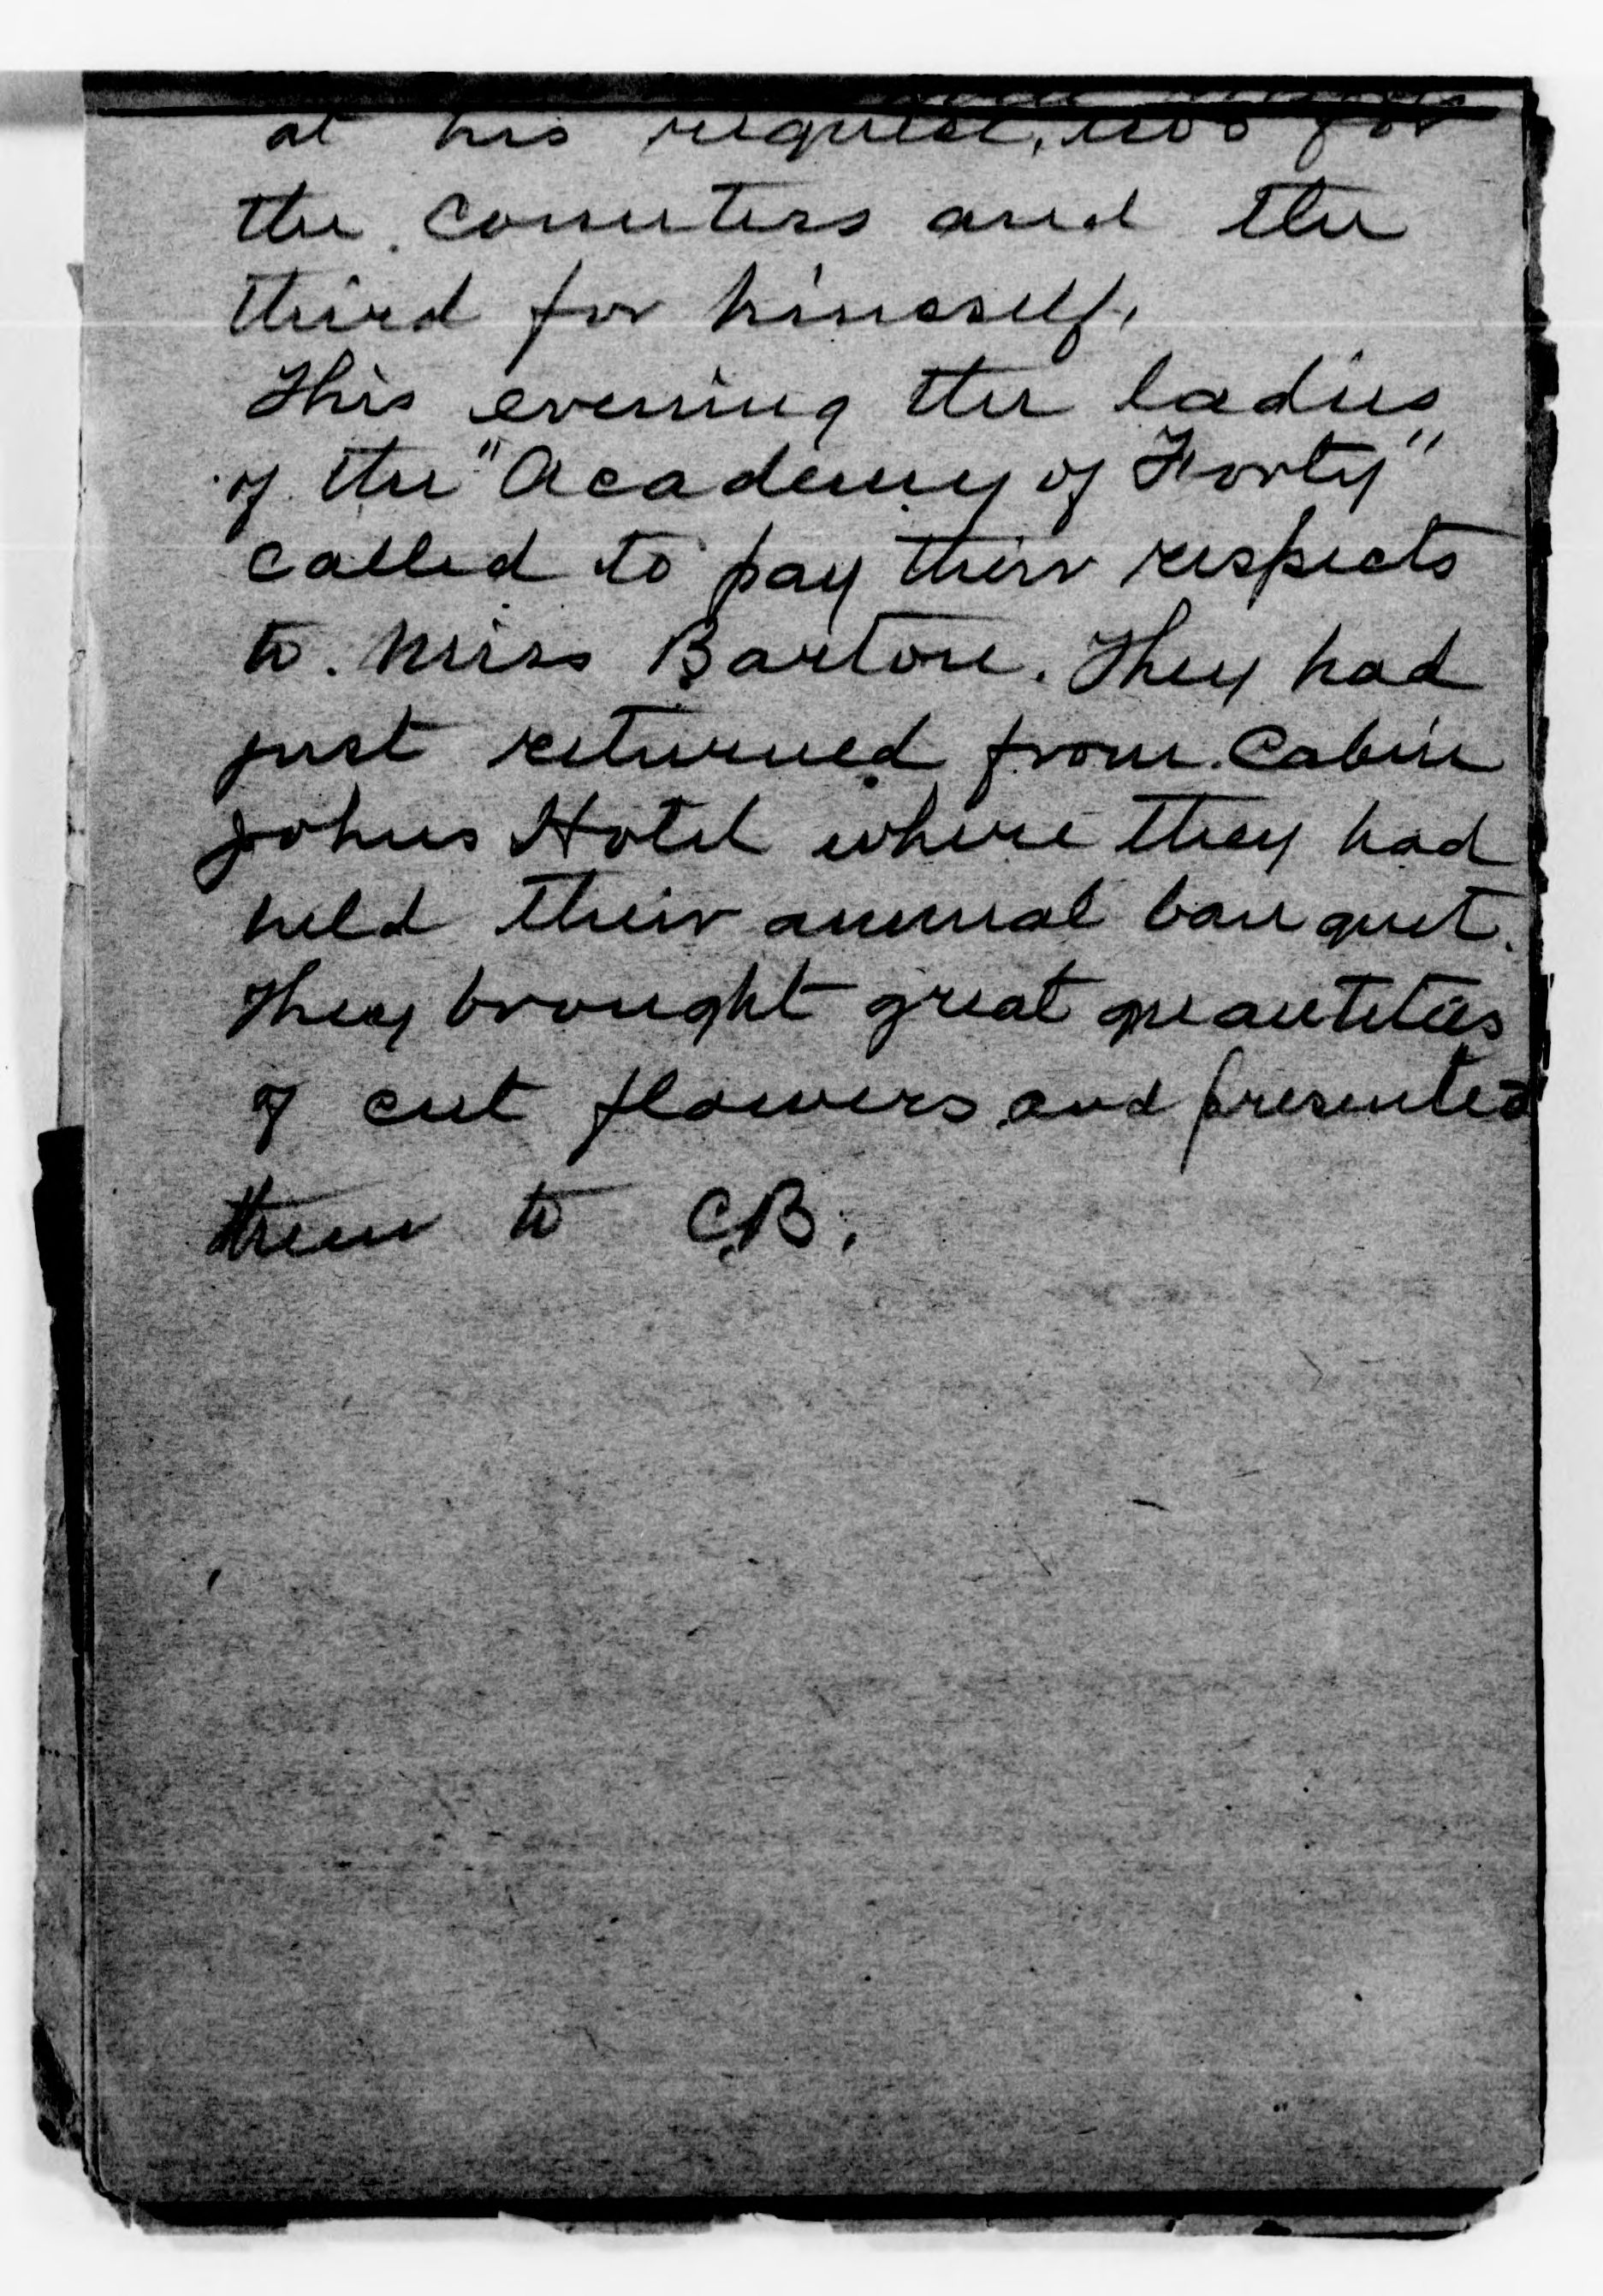 at his request, two for
the counters and the
third for himself.
This evening the ladies
of the "Academy of Forty"
called to pay their respects
to Miss Barton. They had
just returned from Cabin
Johns Hotel where they had
held their annual banquet.
They brought great quantities
of cut flowers and presented
them to C.B.